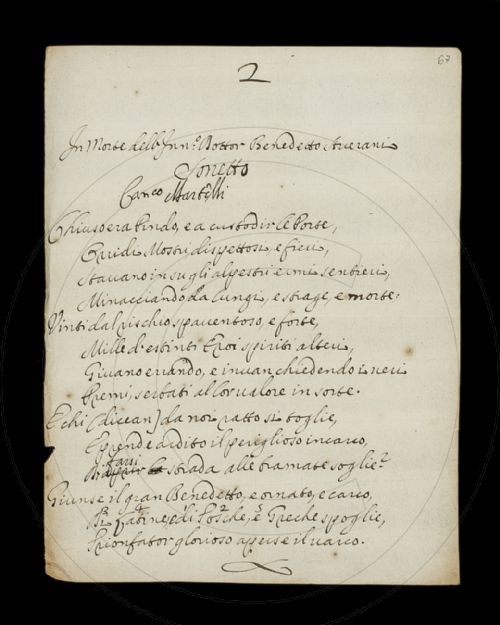 67
2
In Morte dell' Inn.o Dottor Benedetto Averani
Sonetto
Canco Martelli
Chiuso era Pindo, e a custodir le Porte,
Crudi Mostri dispettosi, e fieri,
Stavano in su gli alpestri ermi sentieri,
Minacciando da lungi, e strage, e morte:
Vinti dal rischio spaventoso, e forte,
Mille d'estinti Eroi spiriti alteri,
Givano errando, e in van chiedendo i veri
Premi, serbati al lor valore in sorte.
E chi (dicean) da noi ratto si toglie,
E prende ardito il periglioso incarco,
farsi
strada alle bramate soglie?
Giunse il gran Benedetto, e ornato, e carco,
Di Latine, e di Tosche, e Greche spoglie,
Trionfator glorioso aperse il varco.